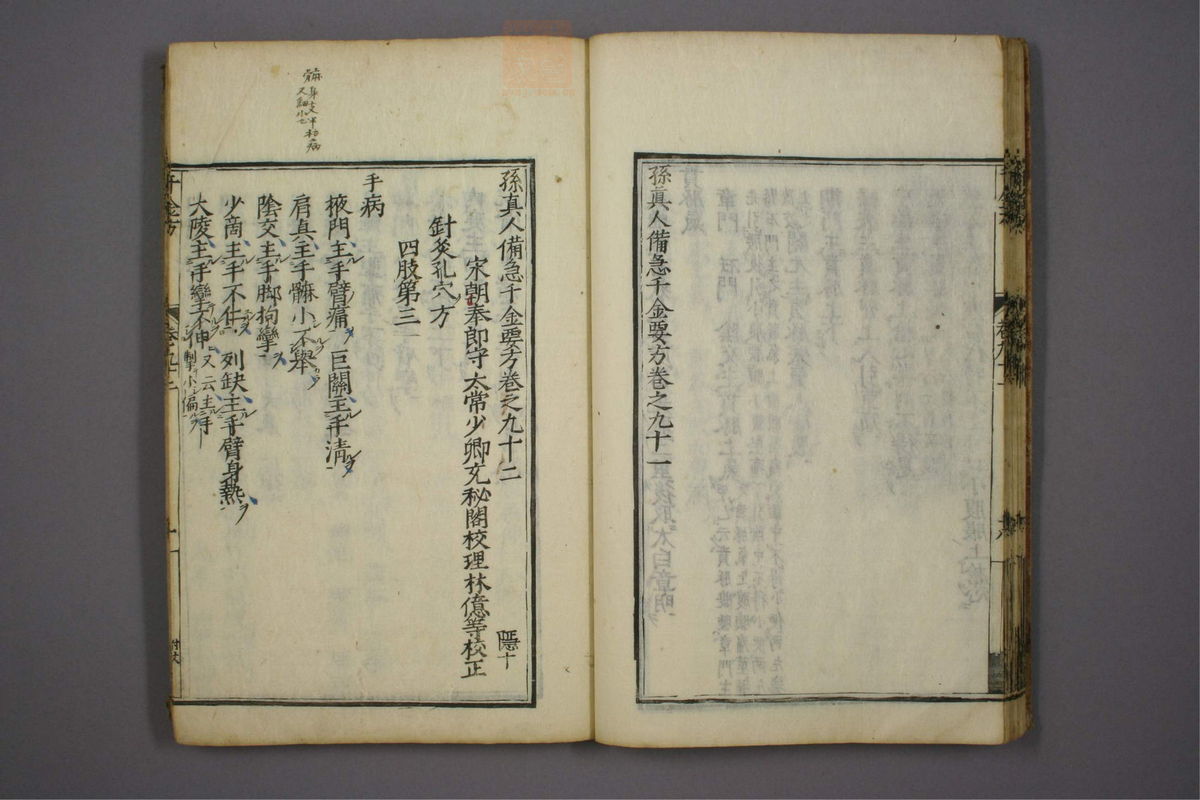 孫眞人備急千金要方卷之九十一
孫眞人備急千金要方卷之九十二
隱十
宋朝奉郎守太常少卿充秘閣校理林億等校正
針灸孔穴方
四肢第三
手病
掖門主手臂痛 巨闕主手清
肩真主手髍小不舉
陰交主手脚拘攣
少商主手不仁 列缺主手臂身熱
大陵主手攣不伸 又云主手掣小偏
千金方
卷九十二
一
付文